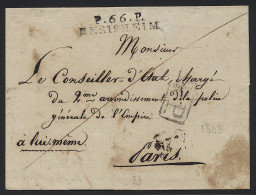 P.66.P.
ENSISHEIM
Monsieur
Le Conseiller d'Etat, chargé
du 2me arrondissement de la police
générale de l'Empire
à lui même.
Paris.
1808
33